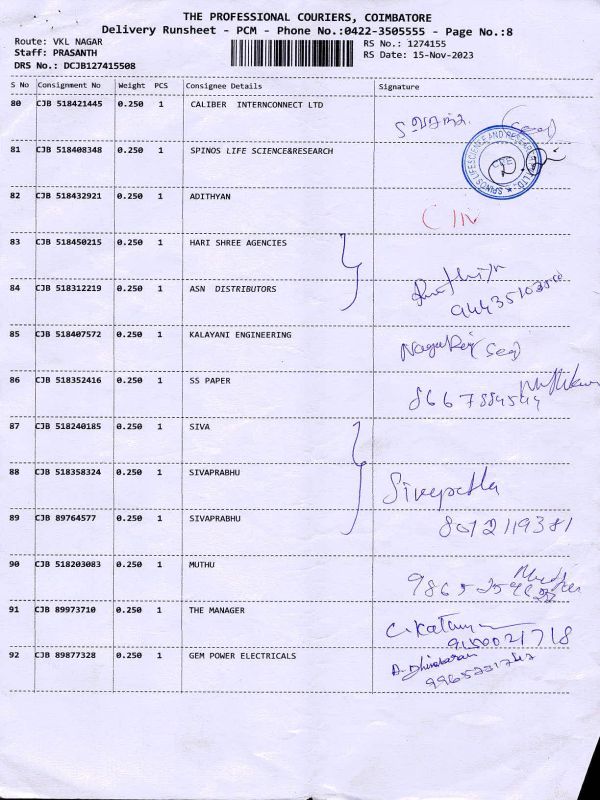 THE PROFESSIONAL COURIERS, COIMBATORE
Delivery Runsheet - PCM - Phone No.:0422-3505555 - Page No.:8
Route: VKL NAGAR
Staff: PRASANTH
DRS No.: DCJB127415508
RS No.: 1274155
RS Date: 15-Nov-2023
S No Consignment No Weight PCS Consignee Details Signature
80 CJB 518421445 0.250 1 CALIBER INTERNCONNECT LTD
81 CJB 518408348 0.250 1 SPINOS LIFE SCIENCE&RESEARCH
SPINOS LIFE SCIENCE AND RESEARCH
82 CJB 518432921 0.250 1 ADITHYAN
83 CJB 518450215 0.250 1 HARI SHREE AGENCIES
84 CJB 518312219 0.250 1 ASN DISTRIBUTORS
85 CJB 518407572 0.250 1 KALAYANI ENGINEERING
86 CJB 518352416 0.250 1 SS PAPER
87 CJB 518240185 0.250 1 SIVA
88 CJB 518358324 0.250 1 SIVAPRABHU
89 CJB 89764577 0.250 1 SIVAPRABHU
8012119381
90 CJB 518203083 0.250 1 MUTHU
91 CJB 89973710 0.250 1 THE MANAGER
92 CJB 89877328 0.250 1 GEM POWER ELECTRICALS